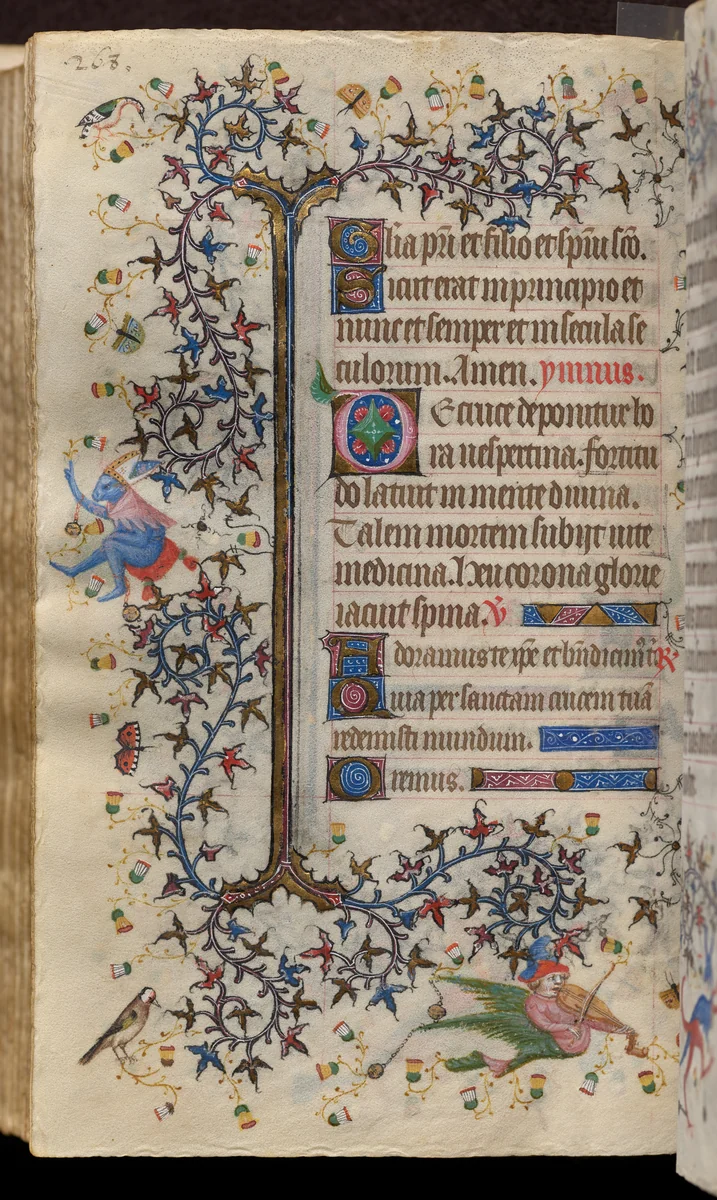 268.
Glia pri et filio et spiui sco.
Sicut erat in principio et
nunc et semper et in secula se
culorum. Amen. ymnus.
De cruce deponitur ho
ra uespertina. fortitu
do latuit in mente diuina.
Talem mortem subijt uite
medicina. heu corona glorie
iacuit spina. V
Adoramus te xpe et bndicim' t' R'
Quia per sanctam crucem tua
redemisti mundum.
Oremus.